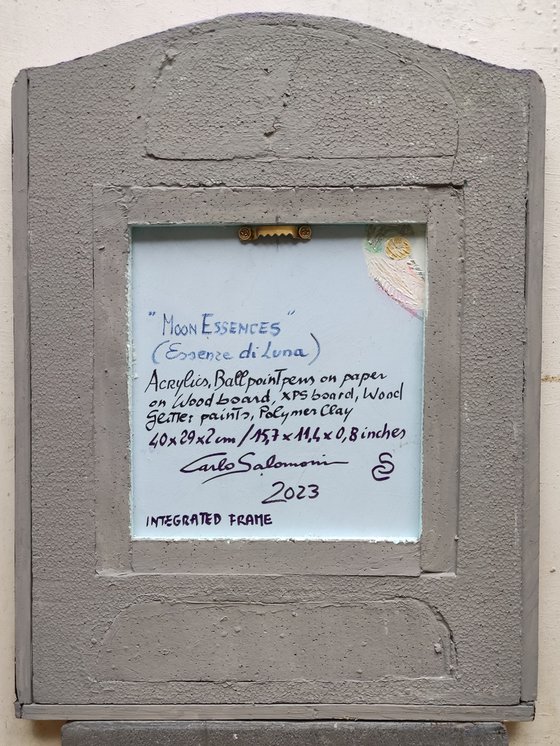 "MOON ESSENCES"
(Essenze di Luna)
Acrylics, Ballpointpens on paper
on Wood board, XPS board, Wood
Glitter paints, Polymer Clay
40x29x2 cm / 15,7 x 11,4 x 0,8 inches
Carlo Salomoni
2023
INTEGRATED FRAME